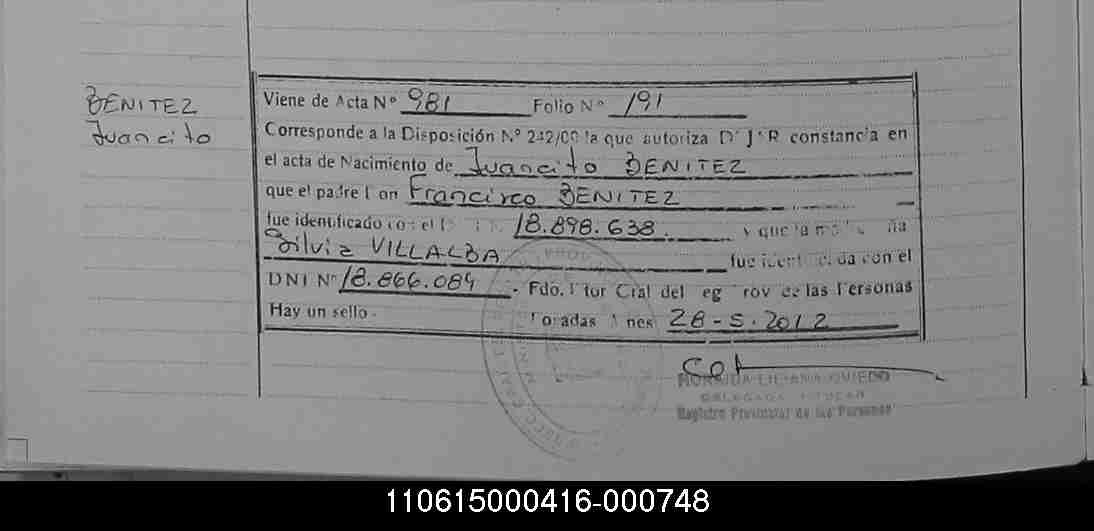 BENITEZ
Juancito
Viene de Acta Nº 981 Folio Nº 191
Corresponde a la Disposición Nº 242/00 la que autoriza constancia en
el acta de Nacimiento de Juancito BENITEZ
que el padre Francisco BENITEZ
fue identificado con el 18.898.638. y que la
Silvia VILLALBA fue con el
DNI Nº 18.866.084 - Fdo. Cral del de las Personas
Hay un sello - 28-5-2012
LILIANA OVIEDO
DELEGADA
Registro Provincial de las Personas
110615000416-000748